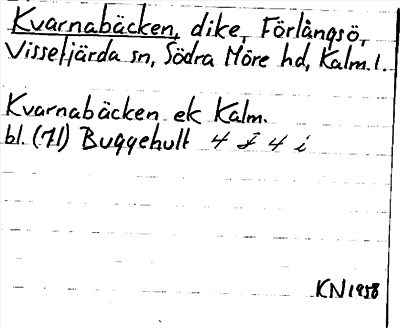 Kvarnabäcken, dike, Förlångsö,
Vissefjärda sn, Södra Möre hd, Kalm. l.
Kvarnabäcken ek Kalm.
bl. (71) Buggehult 4 J 4 i
KN 1958